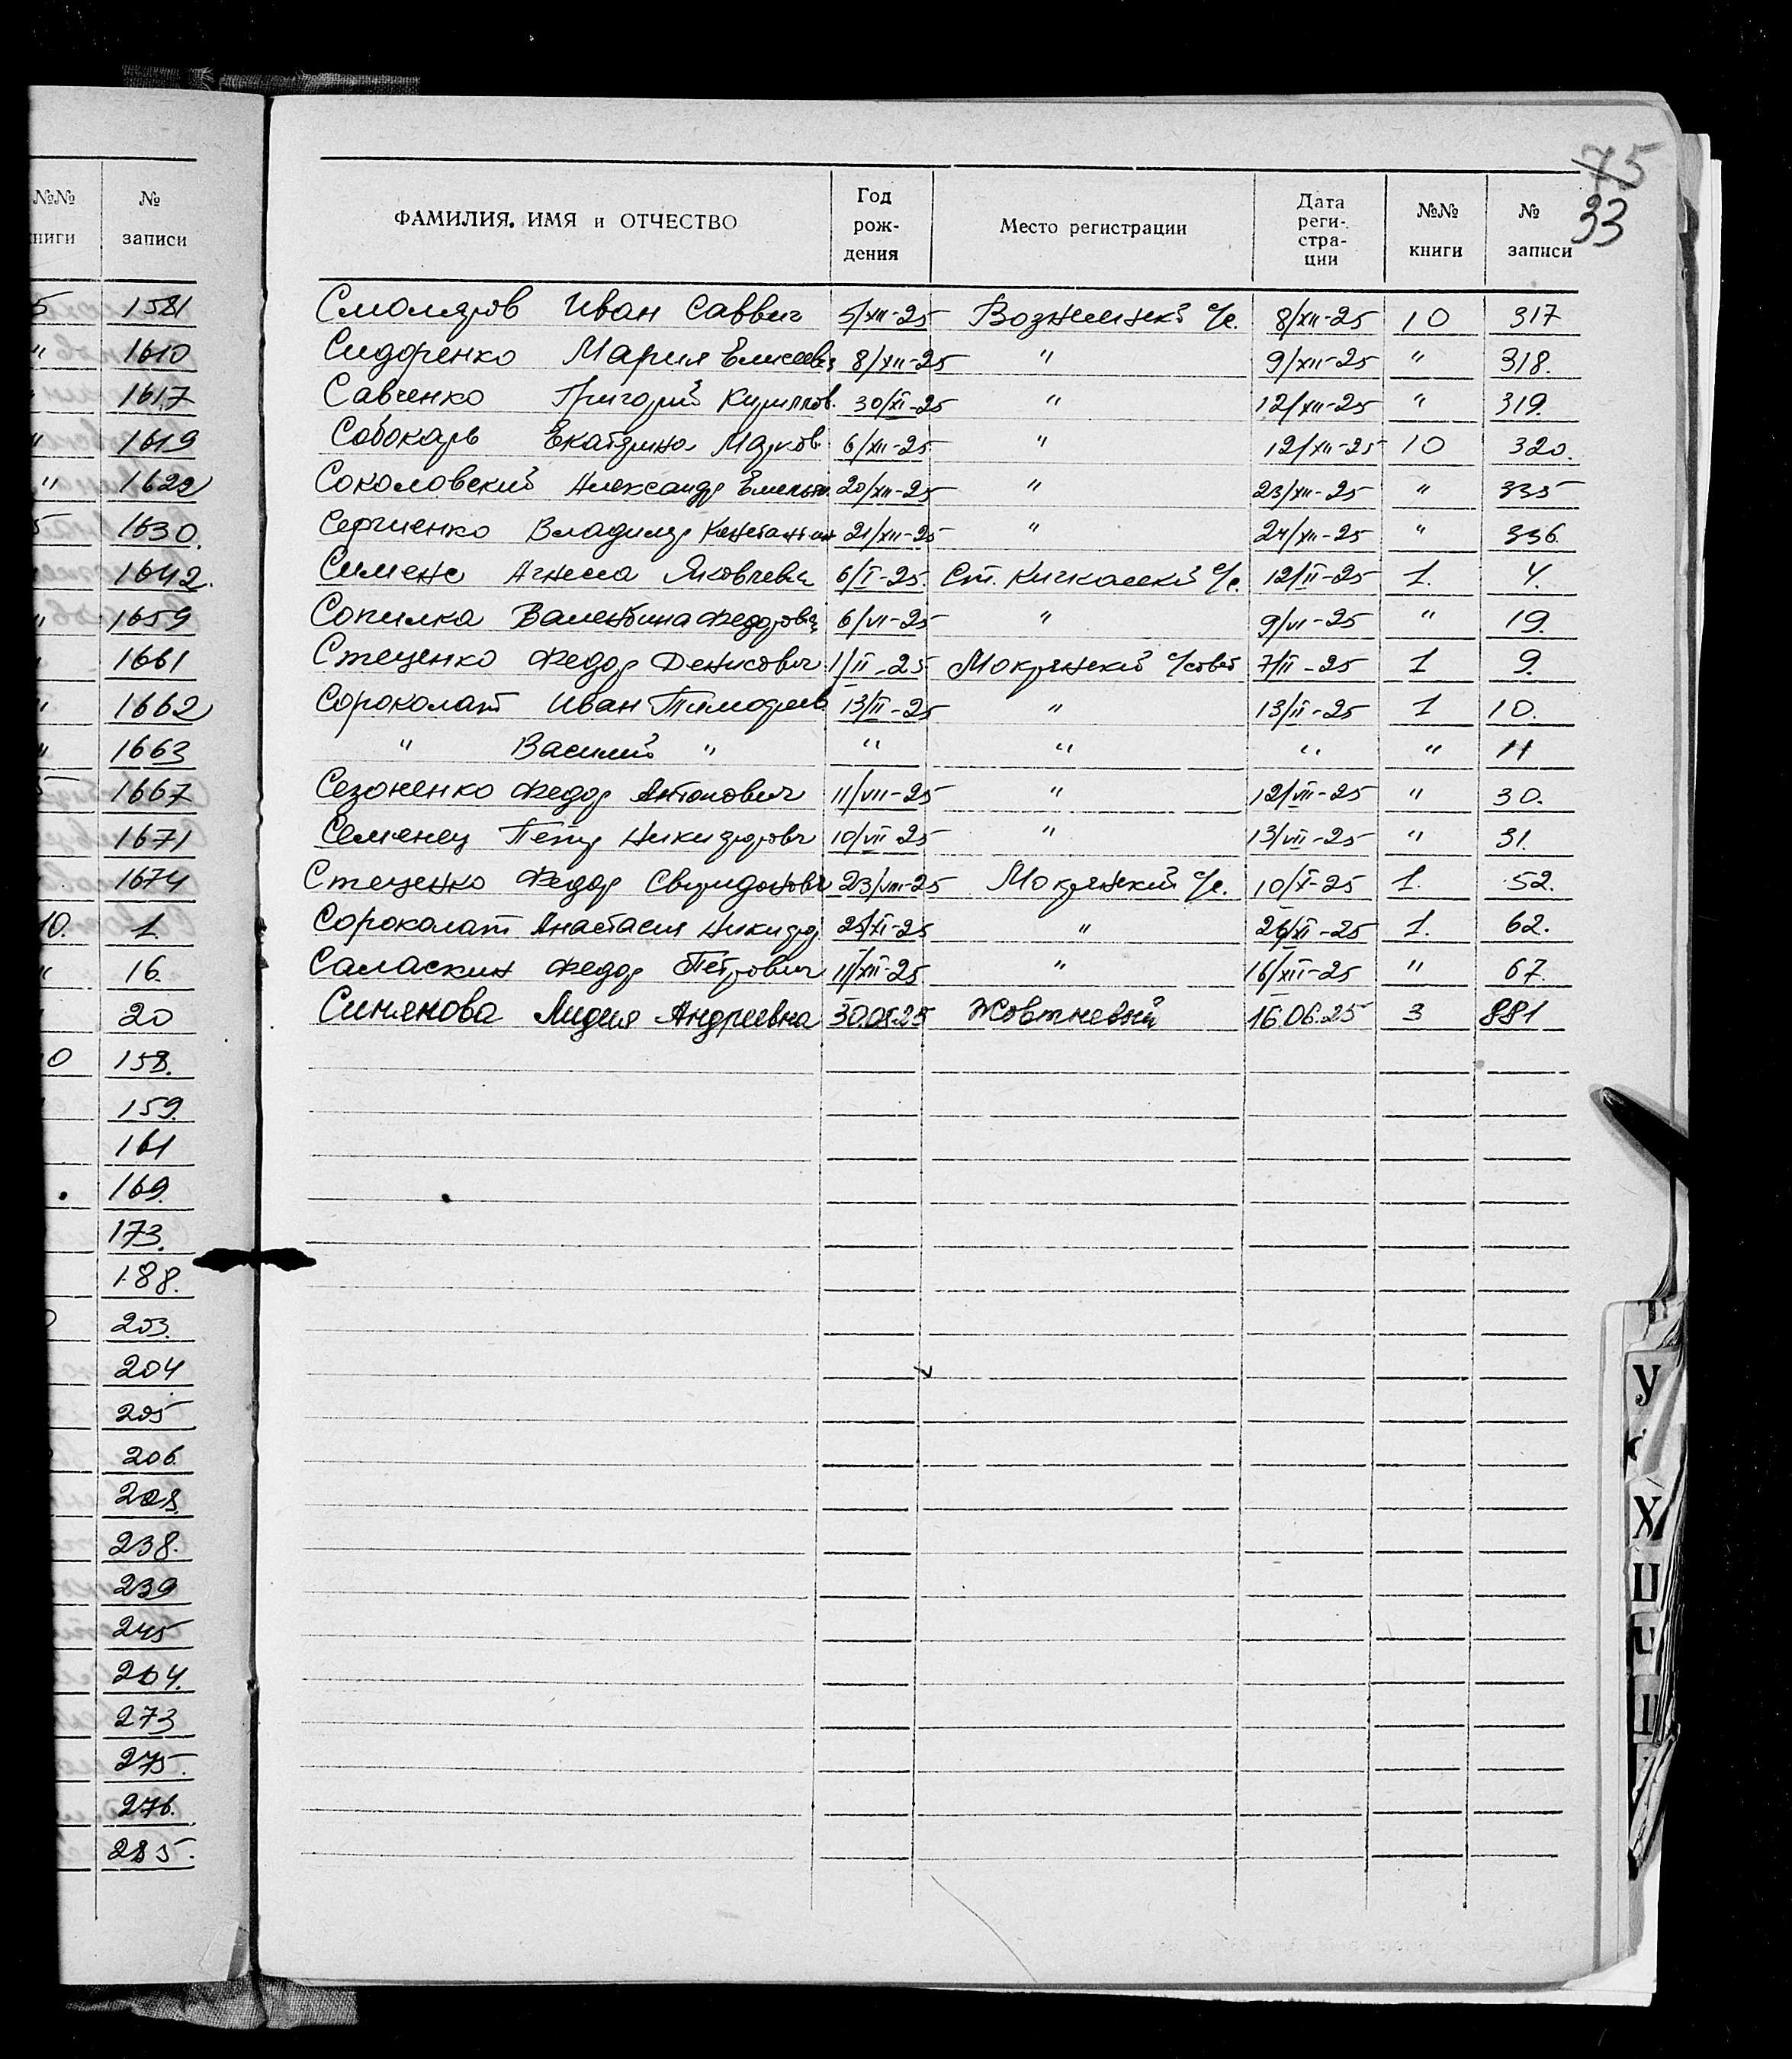 75
33
№№ книги № записи
ФАМИЛИЯ, ИМЯ и ОТЧЕСТВО Год рож-дения Место регистрации Дата реги-стра-ции №№ книги № записи
5 1581
" 1610
" 1617
" 1619
" 1622
5 1630.
1642.
" 1659
" 1661
" 1662
" 1663
5 1667
1671
1674
10. 1.
" 16.
20
0 158.
159.
161
169.
173.
188.
203.
204
205
206.
208.
238.
239
245
264.
273
275.
276.
285.
Смоляров Иван Саввич 5/XII-25 Вознеснский с/с. 8/XII-25 10 317
Сидоренко Мария Елисеев 8/XII-25 " 9/XII-25 " 318.
Савченко Григорий Кириллов. 30/XI-25 " 12/XII-25 " 319.
Собокарь Екатерина Марков. 6/XII-25 " 12/XII-25 10 320.
Соколовский Александр Емельян. 20/XII-25 " 23/XII-25 " 335
Сергиенко Владимир Константин 21/XII-25 " 24/XII-25 " 336.
Сименс Агнесса Яковлевна 6/I-25. Ст. Кичкасский с/с. 12/II-25 1. 4.
Сопилка Валентина Федоровна 6/VI-25 " 9/VI-25 " 19.
Стеценко Федор Денисович 1/II-25 Мокрянский с/совет 7/II-25 1 9.
Сороколат Иван Тимофеев 13/II-25 " 13/II-25 1 10.
" Василий " " " " " 11
Сезоненко Федор Антонович 11/VII-25 " 12/VII-25 " 30.
Семенец Петр Никифорович 10/VII 25 " 13/VII-25 " 31.
Стеценко Федор Свиридонович 23/VIII-25 Мокрянский с/с. 10/X-25 1. 52.
Сороколат Анастасия Никифор. 25/XI-25 " 26/XI-25 1. 62.
Саласкин Федор Петрович 11/XII-25 " 16/XII-25 " 67.
Синякова Лидия Андреевна 30.05.25 Жовтневый 16.06.25 3 881
У
Х
Ц